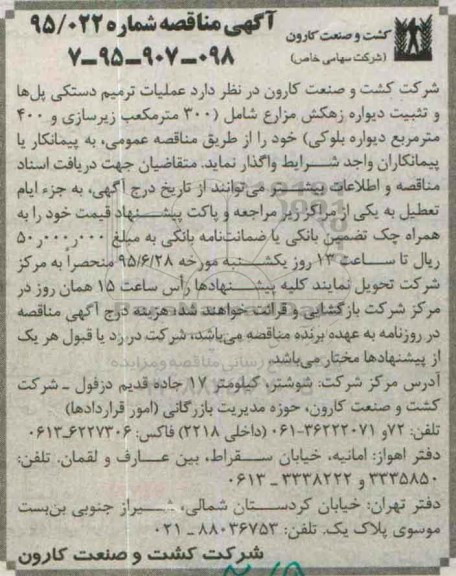 آگهی مناقصه شماره ۹۵/۰۲۲
۷-۹۵-۹۰۷-۰۹۸
کشت و صنعت کارون
(شرکت سهامی خاص)
شرکت کشت و صنعت کارون در نظر دارد عملیات ترمیم دستکی پل‌ها
و تثبیت دیواره زهکش مزارع شامل (۳۰۰ مترمکعب زیرسازی و ۴۰۰
مترمربع دیواره بلوکی) خود را از طریق مناقصه عمومی، به پیمانکار یا
پیمانکاران واجد شرایط واگذار نماید. متقاضیان جهت دریافت اسناد
مناقصه و اطلاعات بیشتر می‌توانند از تاریخ درج آگهی، به جزء ایام
تعطیل به یکی از مراکز زیر مراجعه و پاکت پیشنهاد قیمت خود را به
همراه چک تضمین بانکی یا ضمانت‌نامه بانکی به مبلغ ۵۰ر۰۰۰ر۰۰۰
ریال تا ساعت ۱۳ روز یکشنبه مورخه ۹۵/۶/۲۸ منحصراً به مرکز
شرکت تحویل نمایند کلیه پیشنهادها رأس ساعت ۱۵ همان روز در
مرکز شرکت بازگشایی و قرائت خواهند شد، هزینه درج آگهی مناقصه
در روزنامه به عهده برنده مناقصه می‌باشد، شرکت در رد یا قبول هر یک
از پیشنهادها مختار می‌باشد.
آدرس مرکز شرکت: شوشتر، کیلومتر ۱۷ جاده قدیم دزفول ـ شرکت
کشت و صنعت کارون، حوزه مدیریت بازرگانی (امور قراردادها)
تلفن: ۷۲و ۳۶۲۲۲۰۷۱-۰۶۱ (داخلی ۲۲۱۸) فاکس: ۶۲۲۷۳۰۶-۰۶۱۳
دفتر اهواز: امانیه، خیابان سقراط، بین عارف و لقمان. تلفن:
۳۳۳۵۸۵۰ و ۳۳۳۸۲۲۲ - ۰۶۱۳
دفتر تهران: خیابان کردستان شمالی، شیراز جنوبی بن‌بست
موسوی پلاک یک. تلفن: ۸۸۰۳۶۷۵۳ - ۰۲۱
شرکت کشت و صنعت کارون